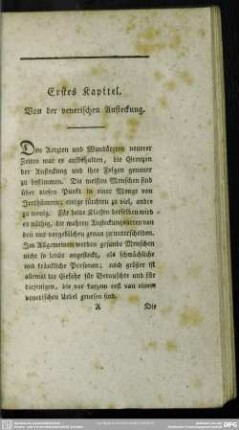 Erstes Kapitel.
Von der venerischen Ansteckung.
Den Aerzten und Wundärzten neuerer
Zeiten war es aufbehalten, die Grenzen
der Ansteckung und ihre Folgen genauer
zu bestimmen. Die meisten Menschen sind
über diesen Punkt in einer Menge von
Irrthümern; einige fürchten zu viel, andre
zu wenig. Für beide Klassen derselben wird
es nöthig, die wahren Ansteckungsarten von
den nur vorgeblichen genau zu unterscheiden.
Im Allgemeinen werden gesunde Menschen
nicht so leicht angesteckt, als schwächliche
und kränkliche Personen; noch größer ist
allemal die Gefahr für Berauschte und für
diejenigen, die vor kurzem erst von einem
venerischen Uebel genesen sind.
A Die